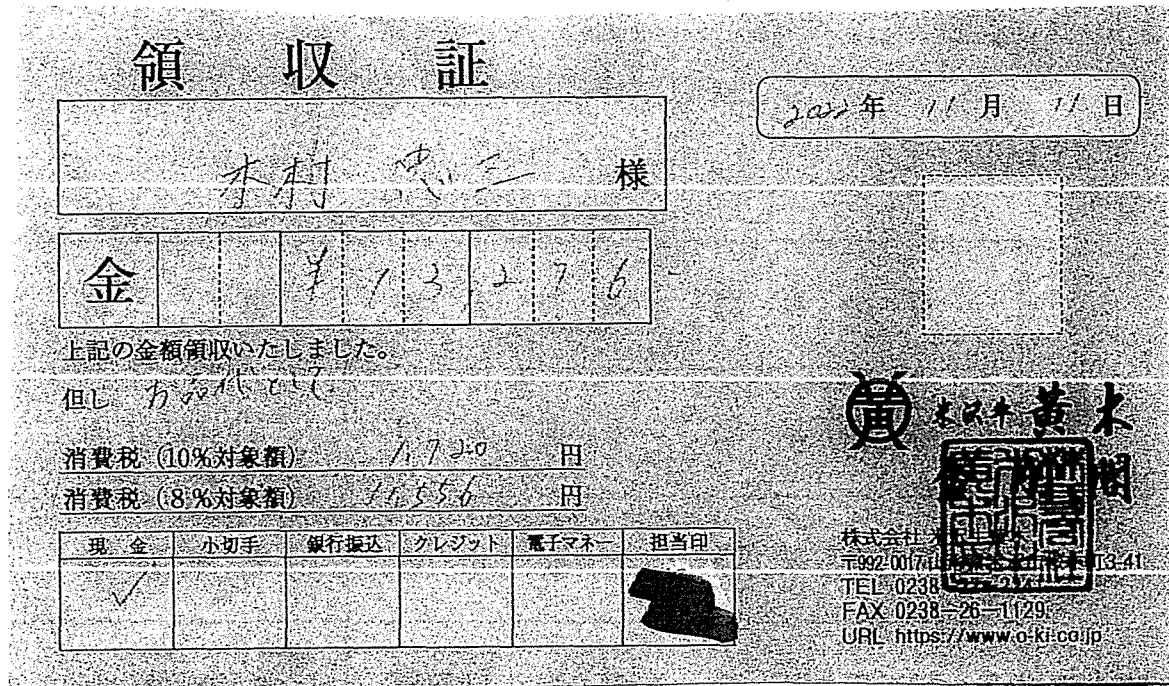 領収証
2022年 11月 11日
木村 忠三 様
金 ¥13,276-
上記の金額領収いたしました。
但し お品代として
消費税(10%対象額) 1,720 円
消費税(8%対象額) 11,556 円
現金 小切手 銀行振込 クレジット 電子マネー 担当印
✓
黄 米沢牛 黄木
株式会社
〒992-0017 3-41
TEL 0238
FAX 0238-26-1129
URL https://www.o-ki.co.jp